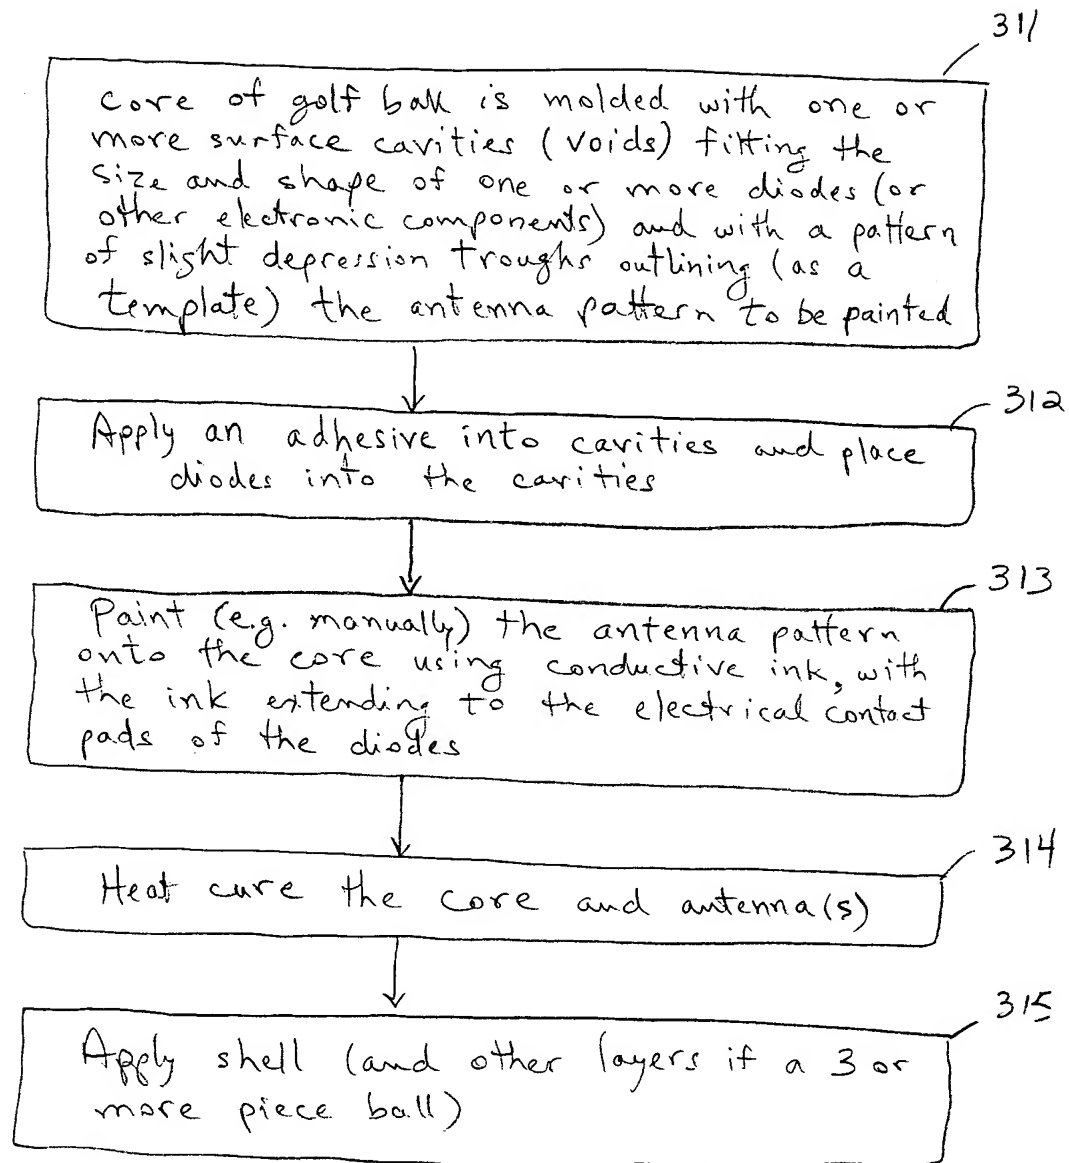 311
core of golf ball is molded with one or
more surface cavities (voids) fitting the
size and shape of one or more diodes (or
other electronic components) and with a pattern
of slight depression troughs outlining (as a
template) the antenna pattern to be painted
312
Apply an adhesive into cavities and place
diodes into the cavities
313
Paint (e.g. manually) the antenna pattern
onto the core using conductive ink, with
the ink extending to the electrical contact
pads of the diodes
314
Heat cure the core and antenna(s)
315
Apply shell (and other layers if a 3 or
more piece ball)